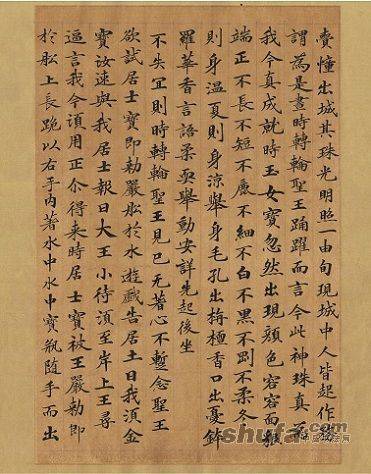 賣憧出城其珠光明照一由旬現城中人皆起作務
謂為是晝時轉輪聖王踊躍而言今此神珠真為
我今真成就時玉女寶忽然出現顏色容容面貌
端正不長不短不麁不細不白不黑不剛不柔冬
則身溫夏則身涼舉身毛孔出栴檀香口出憂鉢
羅華香言語柔耎舉動安詳先起後坐
不失冝則時轉輪聖王見已无著心不蹔念聖王
欲試居士寶即勅嚴舩於水遊戲告居士曰我湏金
寶汝速與我居士報曰大王小待湏至岸上王尋
逼言我今湏用正尒得来時居士寶被王嚴勅即
於舩上長跪以右手内著水中水中寶瓶隨手而出
shufa.com